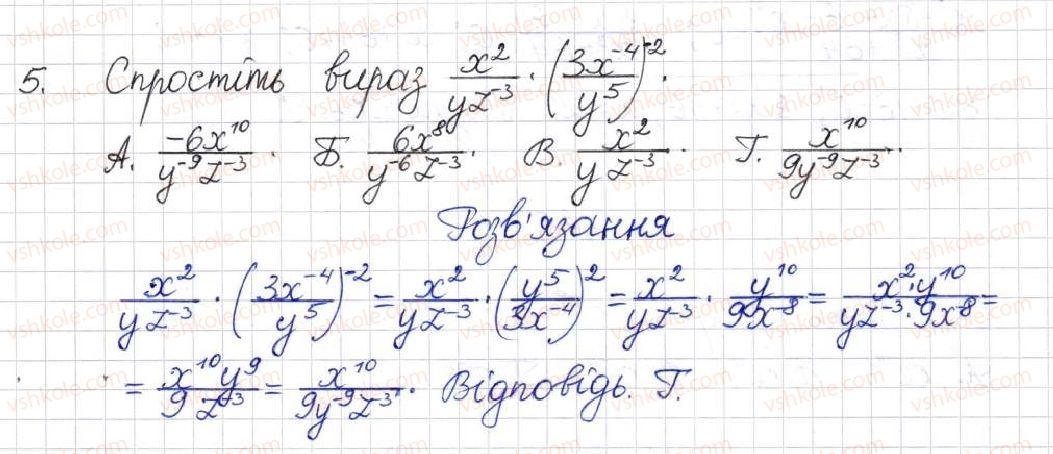 5. Спростіть вираз x²/(yz⁻³) · (3x⁻⁴/y⁵)⁻².
А. -6x¹⁰/(y⁻⁹z⁻³). Б. 6x⁸/(y⁻⁶z⁻³). В. x²/(yz⁻³). Г. x¹⁰/(9y⁻⁹z⁻³).
Розв'язання
x²/(yz⁻³) · (3x⁻⁴/y⁵)⁻² = x²/(yz⁻³) · (y⁵/(3x⁻⁴))² = x²/(yz⁻³) · y¹⁰/(9x⁻⁸) = (x²·y¹⁰)/(yz⁻³·9x⁻⁸) =
= x¹⁰y⁹/(9z⁻³) = x¹⁰/(9y⁻⁹z⁻³). Відповідь. Г.